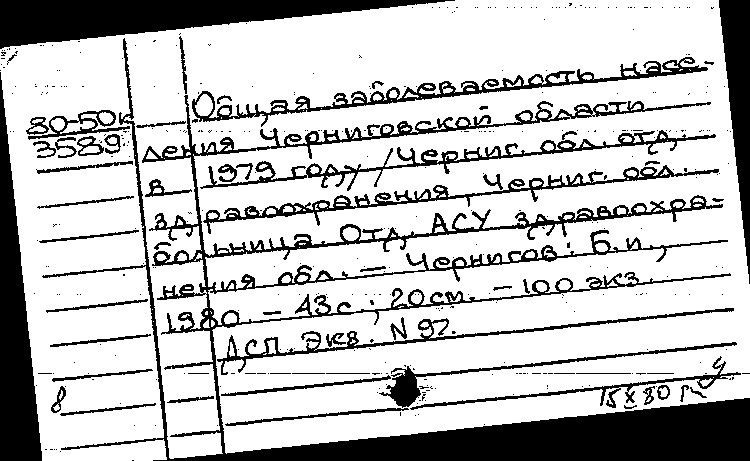 80-50к
3589
Общая заболеваемость насе-
ления Черниговской области
в 1979 году /Черниг. обл. отд.
здравоохранения, Черниг. обл.
больница. Отд. АСУ здравоохра-
нения обл. — Чернигов: Б.и.,
1980. — 43с.; 20см. — 100 экз.
Дсп. Экз. N 97.
8
15 X 80